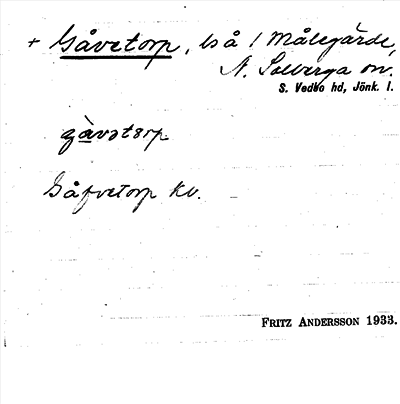 + Gåvetorp, ls å 1 Målegärde,
N. Solberga sn.
S. Vedbo hd, Jönk. l.
gàvetorp
Gåfvetorp kv.
FRITZ ANDERSSON 1933.